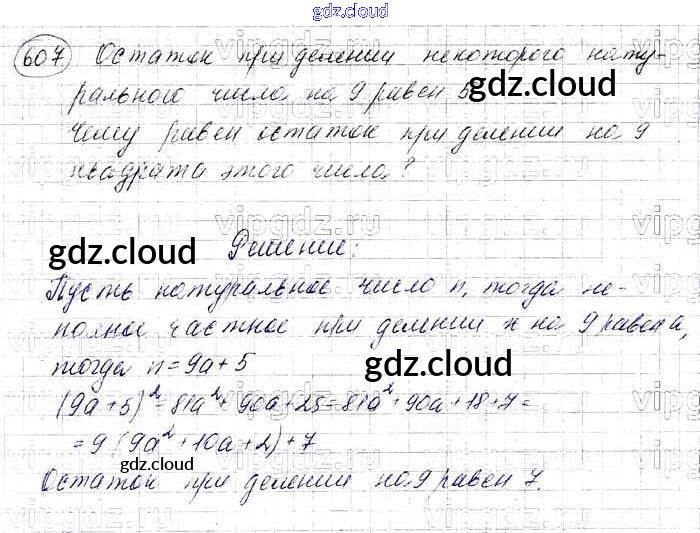 gdz.cloud
607 Остаток при делении некоторого нату-
рального числа на 9 равен 5.
gdz.cloud
Чему равен остаток при делении на 9
квадрата этого числа?
gdz.cloud Решение:
Пусть натуральное число n, тогда не-
полное частное при делении n на 9 равен a,
тогда n = 9a + 5
gdz.cloud
(9a + 5)² = 81a² + 90a + 25 = 81a² + 90a + 18 + 7 =
= 9 (9a² + 10a + 2) + 7
gdz.cloud
Остаток при делении на 9 равен 7.